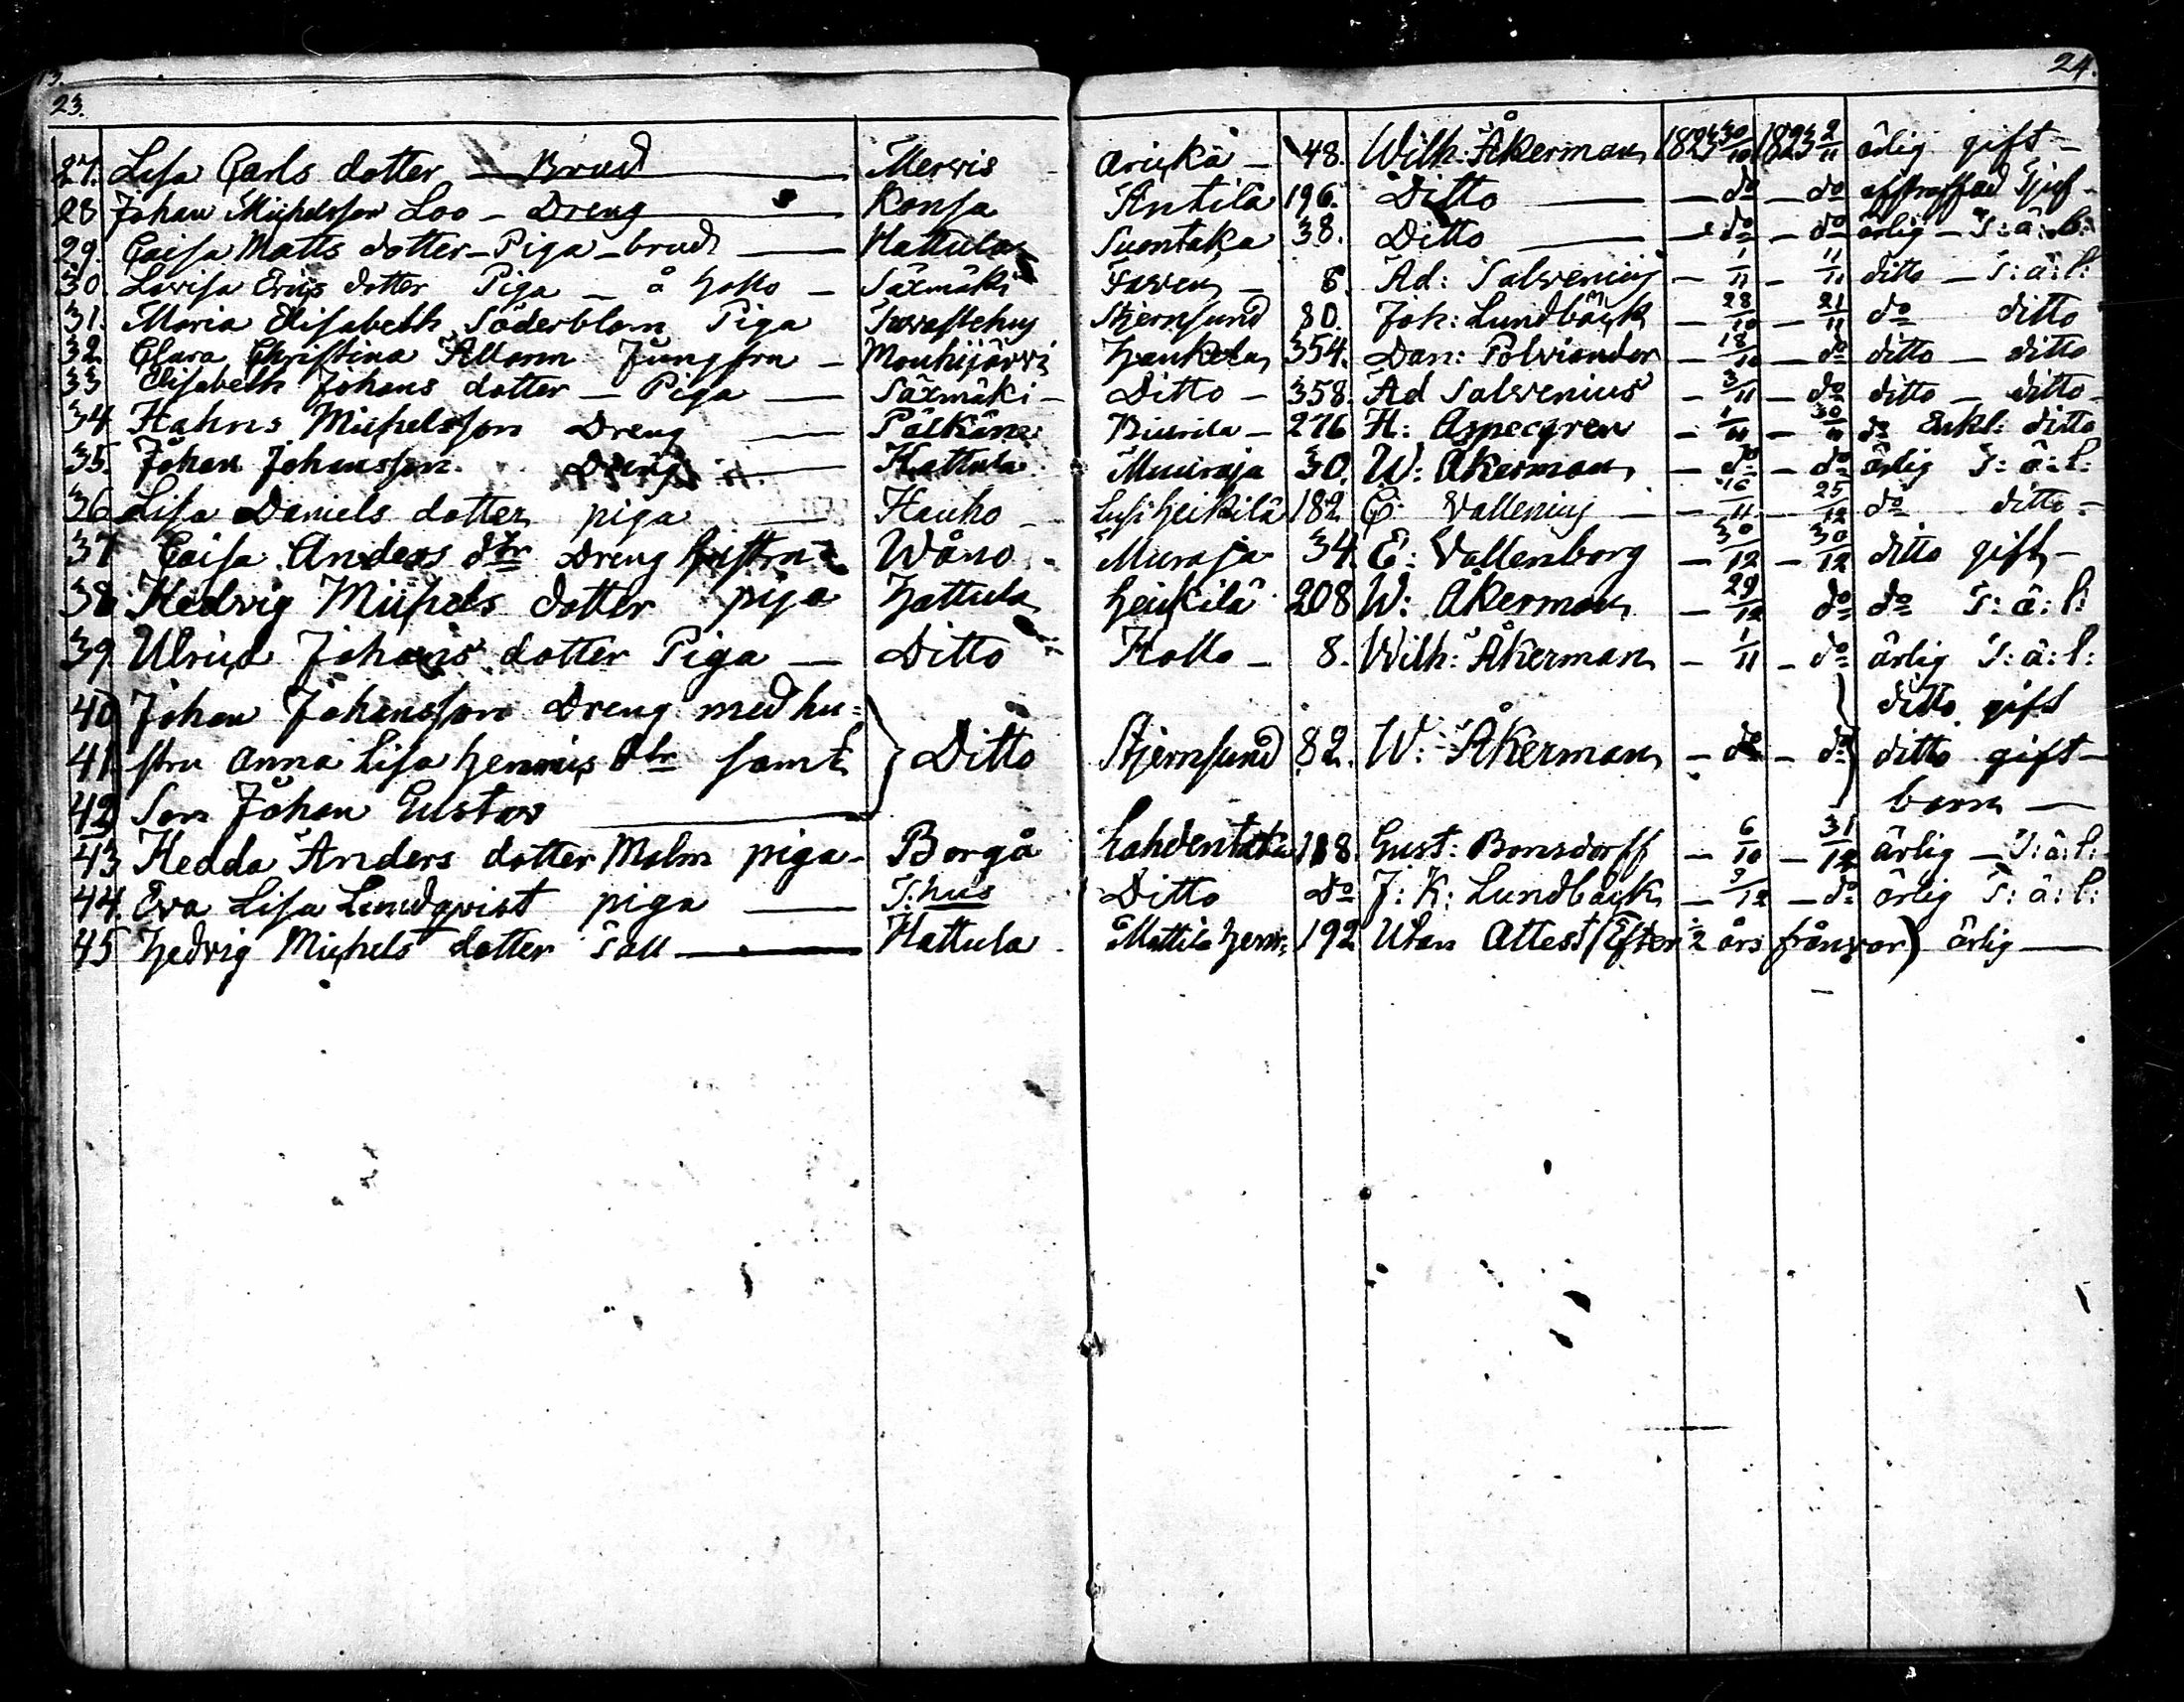 23. 24.
27. Lisa Carls dotter — Brud — Mervis — 48. Wilh: Åkerman 1823 30/10 1823 2/11 ärlig gift —
28 Johan Michelsson Loo — Dreng — Konsa Antila 196. Ditto — — do — do afstraffad Tjuf —
29. Caisa Matts dotter — Piga — brud — Hattula Suontaka 38. Ditto — — do — do ärlig — T: ä: l:
30. Lovisa Erics dotter Piga — å Hollo — Säxmäki 8. Ad: Salvenius — 1/11 — 11/11 ditto — T: ä: l:
31. Maria Elisabeth Söderblom Piga Tavastehus Stjernsund 80. Joh: Lundbäck — 28/10 — 21/11 do ditto
32 Clara Christina Allorm Jungfru — Mouhijärvi 354. Dan: Polviander — 18/10 — do ditto — ditto
33 Elisabeth Johans dotter — Piga — Säxmäki — Ditto — 358. Ad Salvenius — 3/11 — do ditto — ditto —
34 Hahns Michelsson Dreng — Pälkäne — 276 H: Aspegren — — 30/11 do Enkl: ditto
35. Johan Johansson Dreng — Hattula Muuraja 30. W: Åkerman — do — do ärlig T: ä: l:
36 Lisa Daniels dotter piga — Hauho — Heikilä 182 C: Vallenius — — 16/11 — 25/12 do ditto —
37 Caisa Anders dtr Dreng hustru Wåno — Muraja 34. E: Vallenborg — 30/12 — 30/12 ditto gift —
38 Hedvig Michels dotter piga Hattula Heikilä 208 W: Åkerman — 29/12 do do T: ä: l:
39 Ulrica Johans dotter Piga — Ditto Hollo — 8. Wilh: Åkerman — 1/11 — do ärlig T: ä: l:
40 Johan Johansson Dreng med hu= ditto gift
41 stru Anna Lisa Henrics dtr samt Ditto Stjernsund 82. W: Åkerman — do — do ditto gift —
42 Son Johan Gustav — barn —
43 Hedda Anders dotter Malm piga — Borgå Lahdentaka 188. Gust: Bonsdorff — 6/10 — 31/12 ärlig — T: ä: l:
44. Eva Lisa Lundqvist piga — T:hus Ditto do J: K: Lundbäck — 9/12 — do ärlig T: ä: l:
45 Hedvig Michels dotter Tall — Hattula Mattila Henr: 192 Utan Attest (Efter ½ års frånvar) ärlig —